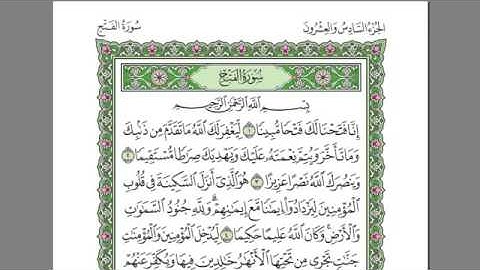 الجزء السادس والعشرون
سورة الفتح
سُورَةُ الفَتْحِ
بِسْمِ اللَّهِ الرَّحْمَٰنِ الرَّحِيمِ
إِنَّا فَتَحْنَا لَكَ فَتْحًا مُّبِينًا ۝١ لِّيَغْفِرَ لَكَ اللَّهُ مَا تَقَدَّمَ مِن ذَنۢبِكَ
وَمَا تَأَخَّرَ وَيُتِمَّ نِعْمَتَهُۥ عَلَيْكَ وَيَهْدِيَكَ صِرَٰطًا مُّسْتَقِيمًا ۝٢
وَيَنصُرَكَ اللَّهُ نَصْرًا عَزِيزًا ۝٣ هُوَ الَّذِىٓ أَنزَلَ السَّكِينَةَ فِى قُلُوبِ
الْمُؤْمِنِينَ لِيَزْدَادُوٓا۟ إِيمَٰنًا مَّعَ إِيمَٰنِهِمْ ۗ وَلِلَّهِ جُنُودُ السَّمَٰوَٰتِ
وَالْأَرْضِ ۚ وَكَانَ اللَّهُ عَلِيمًا حَكِيمًا ۝٤ لِّيُدْخِلَ الْمُؤْمِنِينَ وَالْمُؤْمِنَٰتِ
جَنَّٰتٍ تَجْرِى مِن تَحْتِهَا الْأَنْهَٰرُ خَٰلِدِينَ فِيهَا وَيُكَفِّرَ عَنْهُمْ